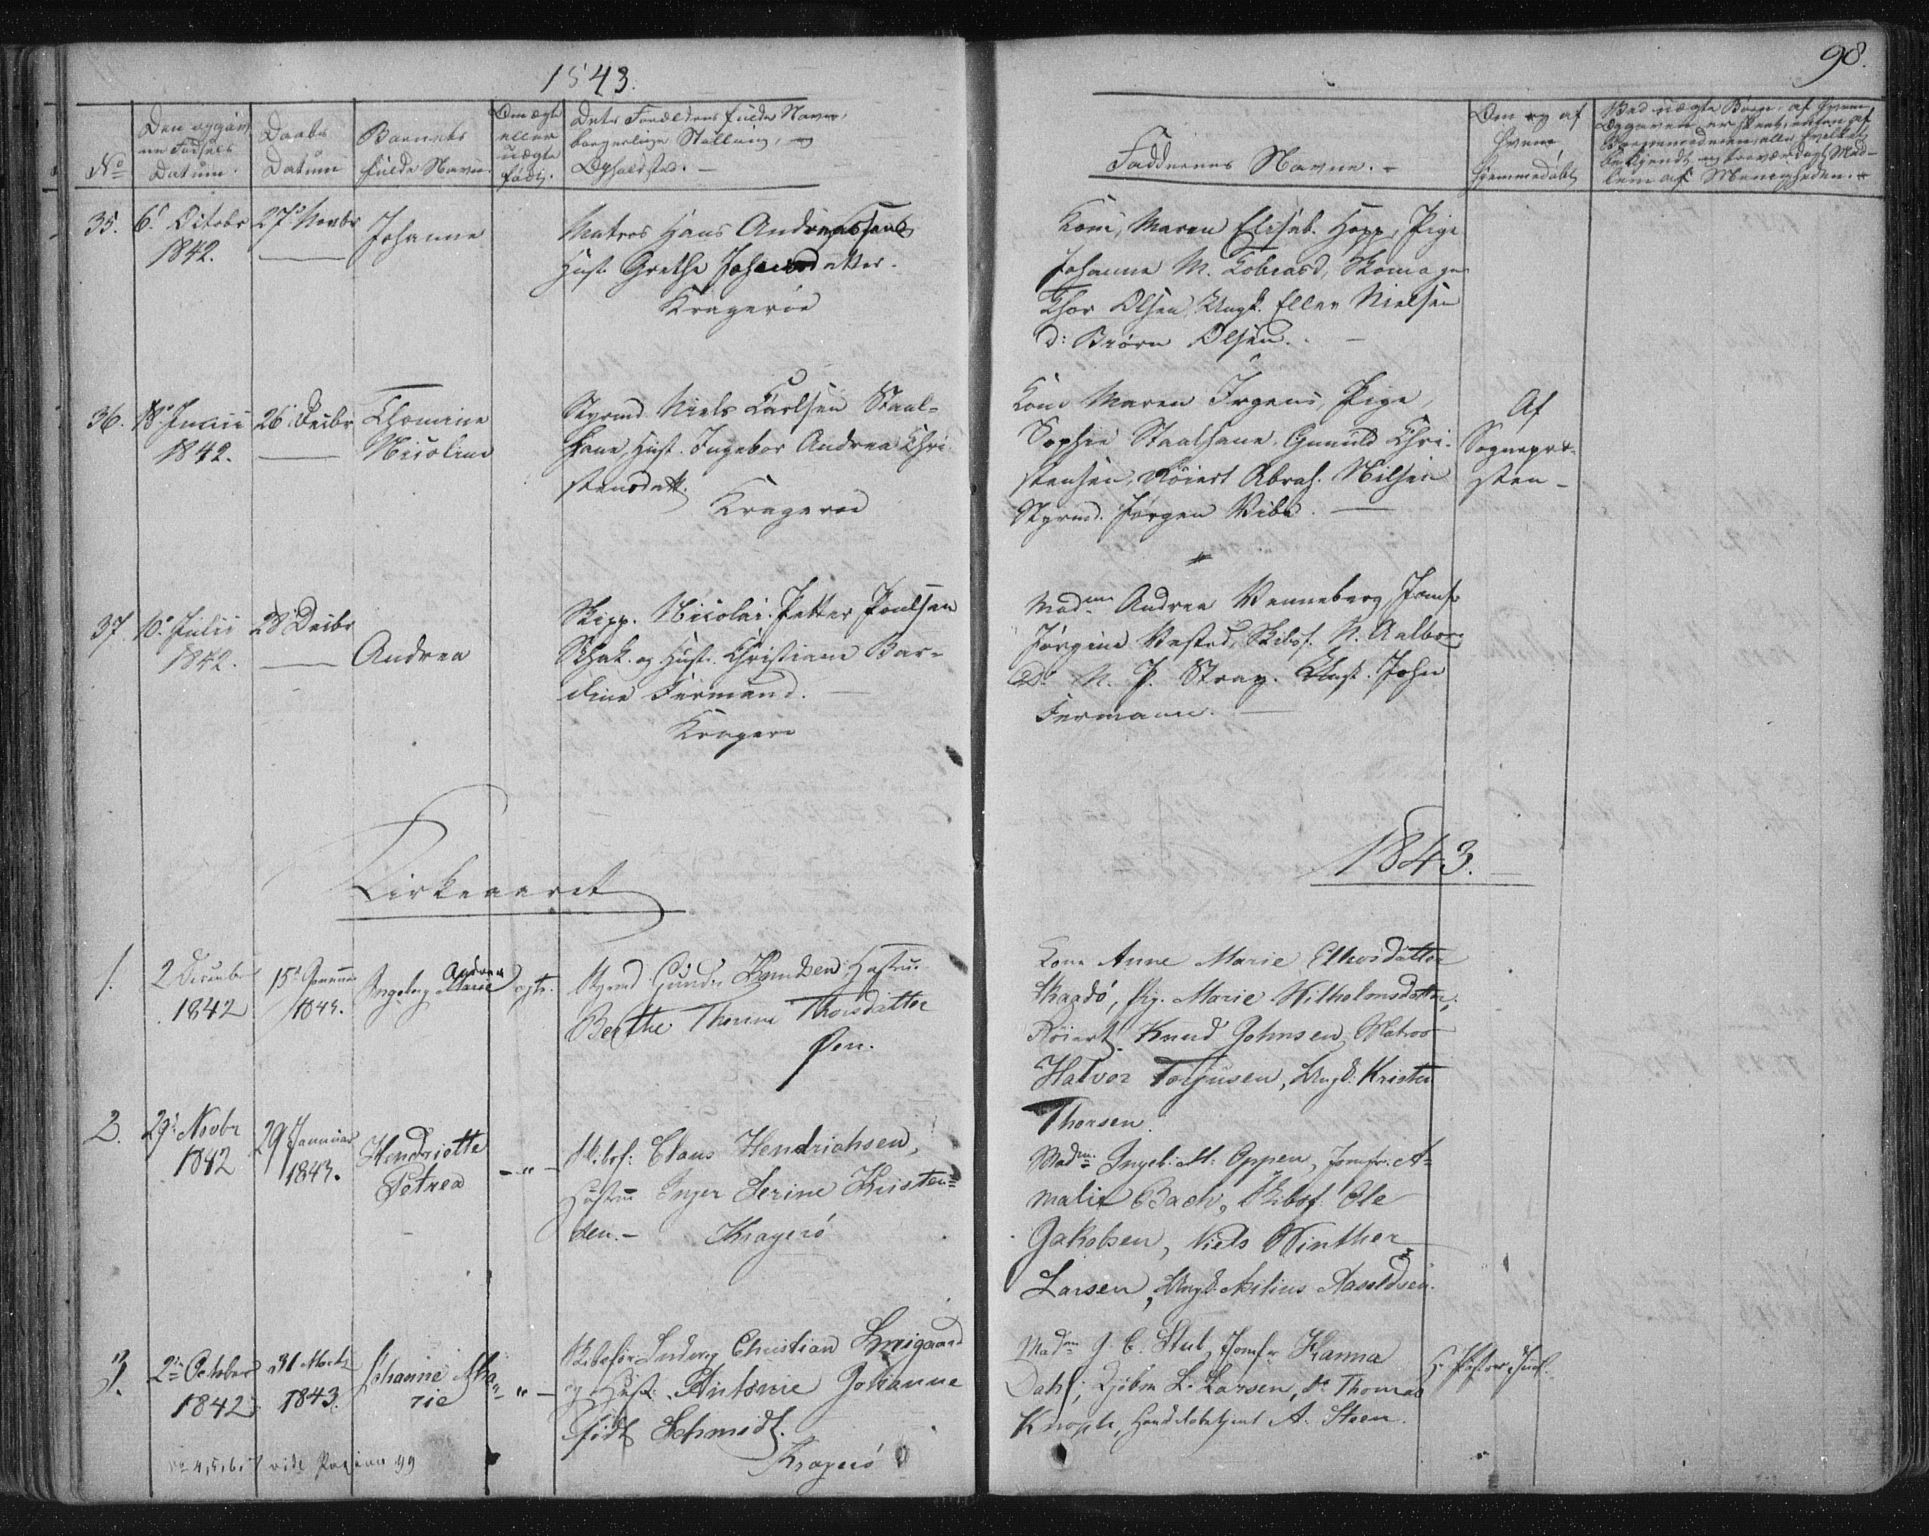 1843.
98.
No
Den opgivne Fødsels Datum.
Daabs Datum
Barnets fulde Navn.
Om ægte eller uægte født.
Dets Forældres fulde Navne, borgerlige Stilling, og Opholdsted. —
Faddernes Navne. —
Om og af hvem hjemmedøbt
35. 6t Octobr 1842. 27d Novbr Johanne
Matros Hans Andreassen
Hust. Grethe Johansdatter.
Kragerøe
Kone, Maren Elisab. Hopp, Pige
Johanne M. Skomager
Thor Olsen, Ungk. Ellev Nielsen
d: Biørn Olsen. —
36. 18d Junii 1842. 26 Decbr Thomine Nicoline
Styrmd. Niels Carlsen Staal-
hane, Hust. Ingebor Andrea Chri-
stensdatt.
Kragerøe
Kone Maren Irgens, Pige,
Sophie Staalhane, Gunuld Chri-
stensen, Røiert Abrah. Nilsen
Styrmd. Jørgen Vibe. —
Af Sognepresten —
37 10d Julii 1842. 28 Decbr Andrea
Skipp. Nicolai Petter Poulsen
Schak. og Hust. Christiane Bar-
dine Fermand. —
Kragerø
Madme Andrea Wenneberg Jomf.
Jørgine Vasted, Skibsf. N. Aalborg
do N. P. Stray. Ungk. John
Fermann. —
Kirkeaaret
1843.
1. 2 December 1842 15d Januar 1843. Ingeborg Andrea Marie ægte.
Styrmd Gunder Knudsen, Hustru
Berthe Thorine Thorsdatter
Øen.
Kone Anne Marie Ellevsdatter
Skaadø, Pig. Marie Wilhelmsdatter,
Røiert Knud Johnsen, Matros
Halvor Torjusen, Ungk. Krister
Thorsen.
2. 29d Novbr 1842 29 Januar 1843. Hendriette Petrea — " —
Skibsf: Claus Hendrichsen,
Hustru Inger Serine Kristen-
sen. — Kragerø
Madm: Ingeb: M: Oppen, Jomfr: A-
malie Bach, Skibsf. Ole
Jakobsen, Niels Winther
Larsen, Ungk. Nilius Aaseldsen.
3. 2den October 1842. 31 Marts 1843. Johanne Marie — " —
Skibsfør. Ludvig Christian
og Hust: Antonie Johanne
født Schmedt.
Kragerø
Madm J. C. Stub, Jomfr Hanna
Dahl, Kjøbm L. Larsen, do Thomas
Knoph, Handelsbetjent A. Steen.
No 4, 5, 6, 7 vide Pagina 99